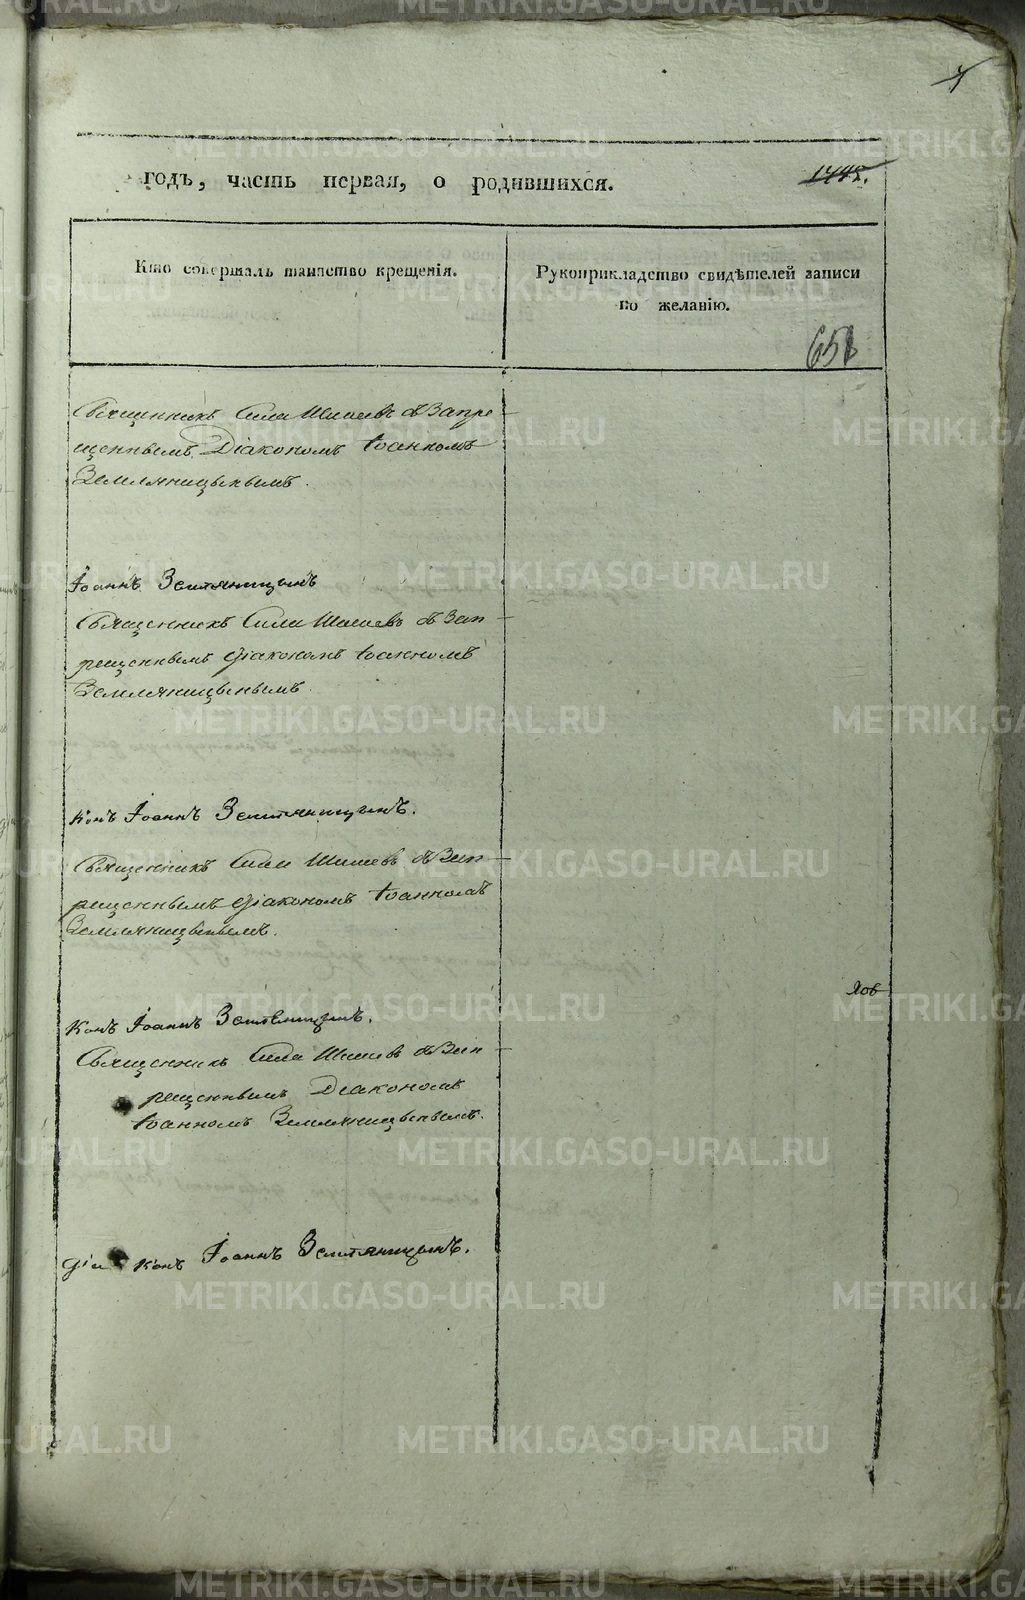 годъ, часть первая, о родившихся.
1445.
Кто совершалъ таинство крещенія.
Рукоприкладство свидѣтелей записи
по желанію.
Священникъ Сила Шишевъ съ Запре-
щеннымъ Діакономъ Іоанномъ
Земляницынымъ.
Іоаннъ Земляницынъ
Священникъ Сила Шишевъ съ Зап-
рещеннымъ діакономъ Іоанномъ
Земляницынымъ.
конъ Іоаннъ Земляницынъ.
Священникъ Сила Шишевъ съ Зап-
рещеннымъ діакономъ Іоанномъ
Земляницынымъ.
конъ Іоаннъ Земляницынъ.
Священникъ Сила Шишевъ съ Зап-
рещеннымъ Діакономъ
Іоанномъ Земляницынымъ.
діа конъ Іоаннъ Земляницынъ.
METRIKI.GASO-URAL.RU